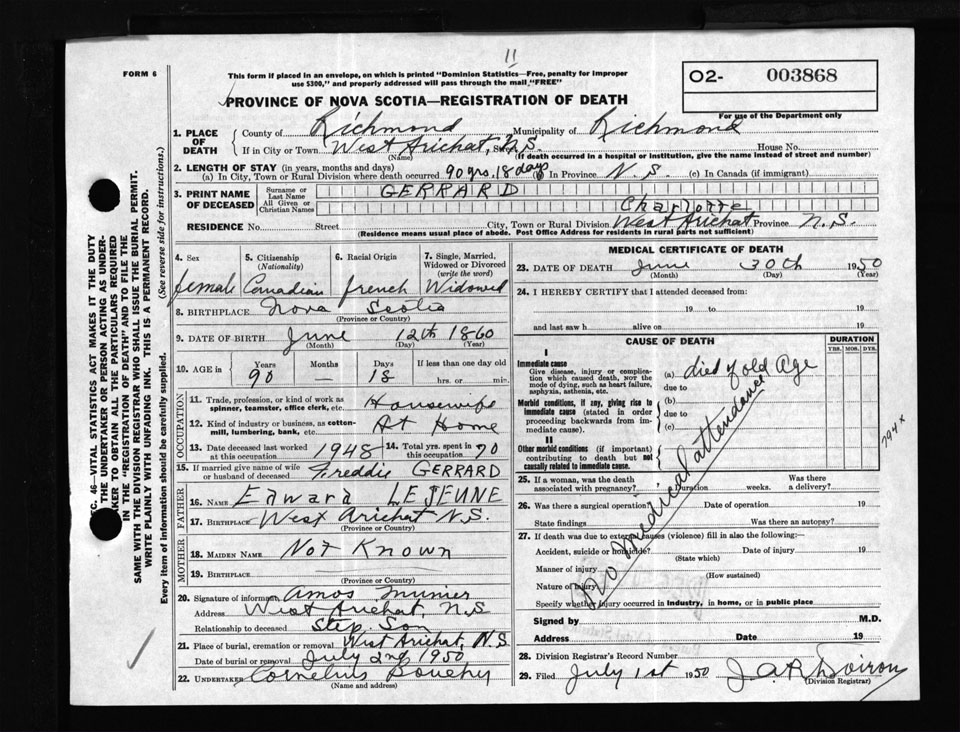 11
FORM 6
This form if placed in an envelope, on which is printed "Dominion Statistics—Free, penalty for improper
use $300," and properly addressed will pass through the mail "FREE"
O2- 003868
For use of the Department only
PROVINCE OF NOVA SCOTIA—REGISTRATION OF DEATH
1. PLACE OF DEATH
County of Richmond Municipality of Richmond
If in City or Town West Arichat, N.S. House No.
(Name) (If death occurred in a hospital or institution, give the name instead of street and number)
2. LENGTH OF STAY (in years, months and days)
(a) In City, Town or Rural Division where death occurred 90 yrs, 18 days (b) In Province N.S. (c) In Canada (if immigrant)
3. PRINT NAME OF DECEASED
Surname or Last Name GERRARD
All Given or Christian Names Charlotte
RESIDENCE No. Street City, Town or Rural Division West Arichat Province N.S.
(Residence means usual place of abode. Post Office Address for residents in rural parts not sufficient)
4. Sex female
5. Citizenship (Nationality) Canadian
6. Racial Origin french
7. Single, Married, Widowed or Divorced (write the word) Widowed
8. BIRTHPLACE Nova Scotia
(Province or Country)
9. DATE OF BIRTH June 12th 1860
(Month) (Day) (Year)
10. AGE in Years 90 Months — Days 18 If less than one day old hrs. or min.
OCCUPATION
11. Trade, profession, or kind of work as spinner, teamster, office clerk, etc. Housewife
12. Kind of industry or business, as cotton-mill, lumbering, bank, etc. At Home
13. Date deceased last worked at this occupation 1948
14. Total yrs. spent in this occupation 70
15. If married give name of wife or husband of deceased Freddie GERRARD
FATHER
16. NAME Edward LEJEUNE
17. BIRTHPLACE West Arichat N.S.
(Province or Country)
MOTHER
18. MAIDEN NAME Not Known
19. BIRTHPLACE
(Province or Country)
20. Signature of informant Amos
Address West Arichat N.S
Relationship to deceased Step. Son
21. Place of burial, cremation or removal West Arichat, N.S.
Date of burial or removal July 2nd 1950
22. UNDERTAKER Cornelius
(Name and address)
MEDICAL CERTIFICATE OF DEATH
23. DATE OF DEATH June 30th 1950
(Month) (Day) (Year)
24. I HEREBY CERTIFY that I attended deceased from:
19 to 19
and last saw h alive on 19
CAUSE OF DEATH
DURATION
YRS. MOS. DYS.
I
Immediate cause
Give disease, injury or complication which caused death, not the mode of dying, such as heart failure, asphyxia, asthenia, etc.
(a) died of old Age
due to
Morbid conditions, if any, giving rise to immediate cause (stated in order proceeding backwards from immediate cause).
(b)
due to
(c)
II
Other morbid conditions (if important) contributing to death but not causally related to immediate cause.
794x
No medical attendance
25. If a woman, was the death associated with pregnancy? Duration weeks. Was there a delivery?
26. Was there a surgical operation? Date of operation 19
State findings Was there an autopsy?
27. If death was due to external causes (violence) fill in also the following:—
Accident, suicide or homicide? Date of injury 19
(State which)
Manner of injury
(How sustained)
Nature of injury
Specify whether injury occurred in industry, in home, or in public place
Signed by M.D.
Address Date 19
28. Division Registrar's Record Number
29. Filed July 1st 1950 J.A.R. Doiron
(Division Registrar)
SEC. 46—VITAL STATISTICS ACT MAKES IT THE DUTY
OF THE UNDERTAKER OR PERSON ACTING AS UNDER-
TAKER TO OBTAIN ALL THE PARTICULARS REQUIRED
IN THE "REGISTRATION OF DEATH" AND TO FILE THE
SAME WITH THE DIVISION REGISTRAR WHO SHALL ISSUE THE BURIAL PERMIT.
WRITE PLAINLY WITH UNFADING INK. THIS IS A PERMANENT RECORD.
Every item of information should be carefully supplied. (See reverse side for instructions.)